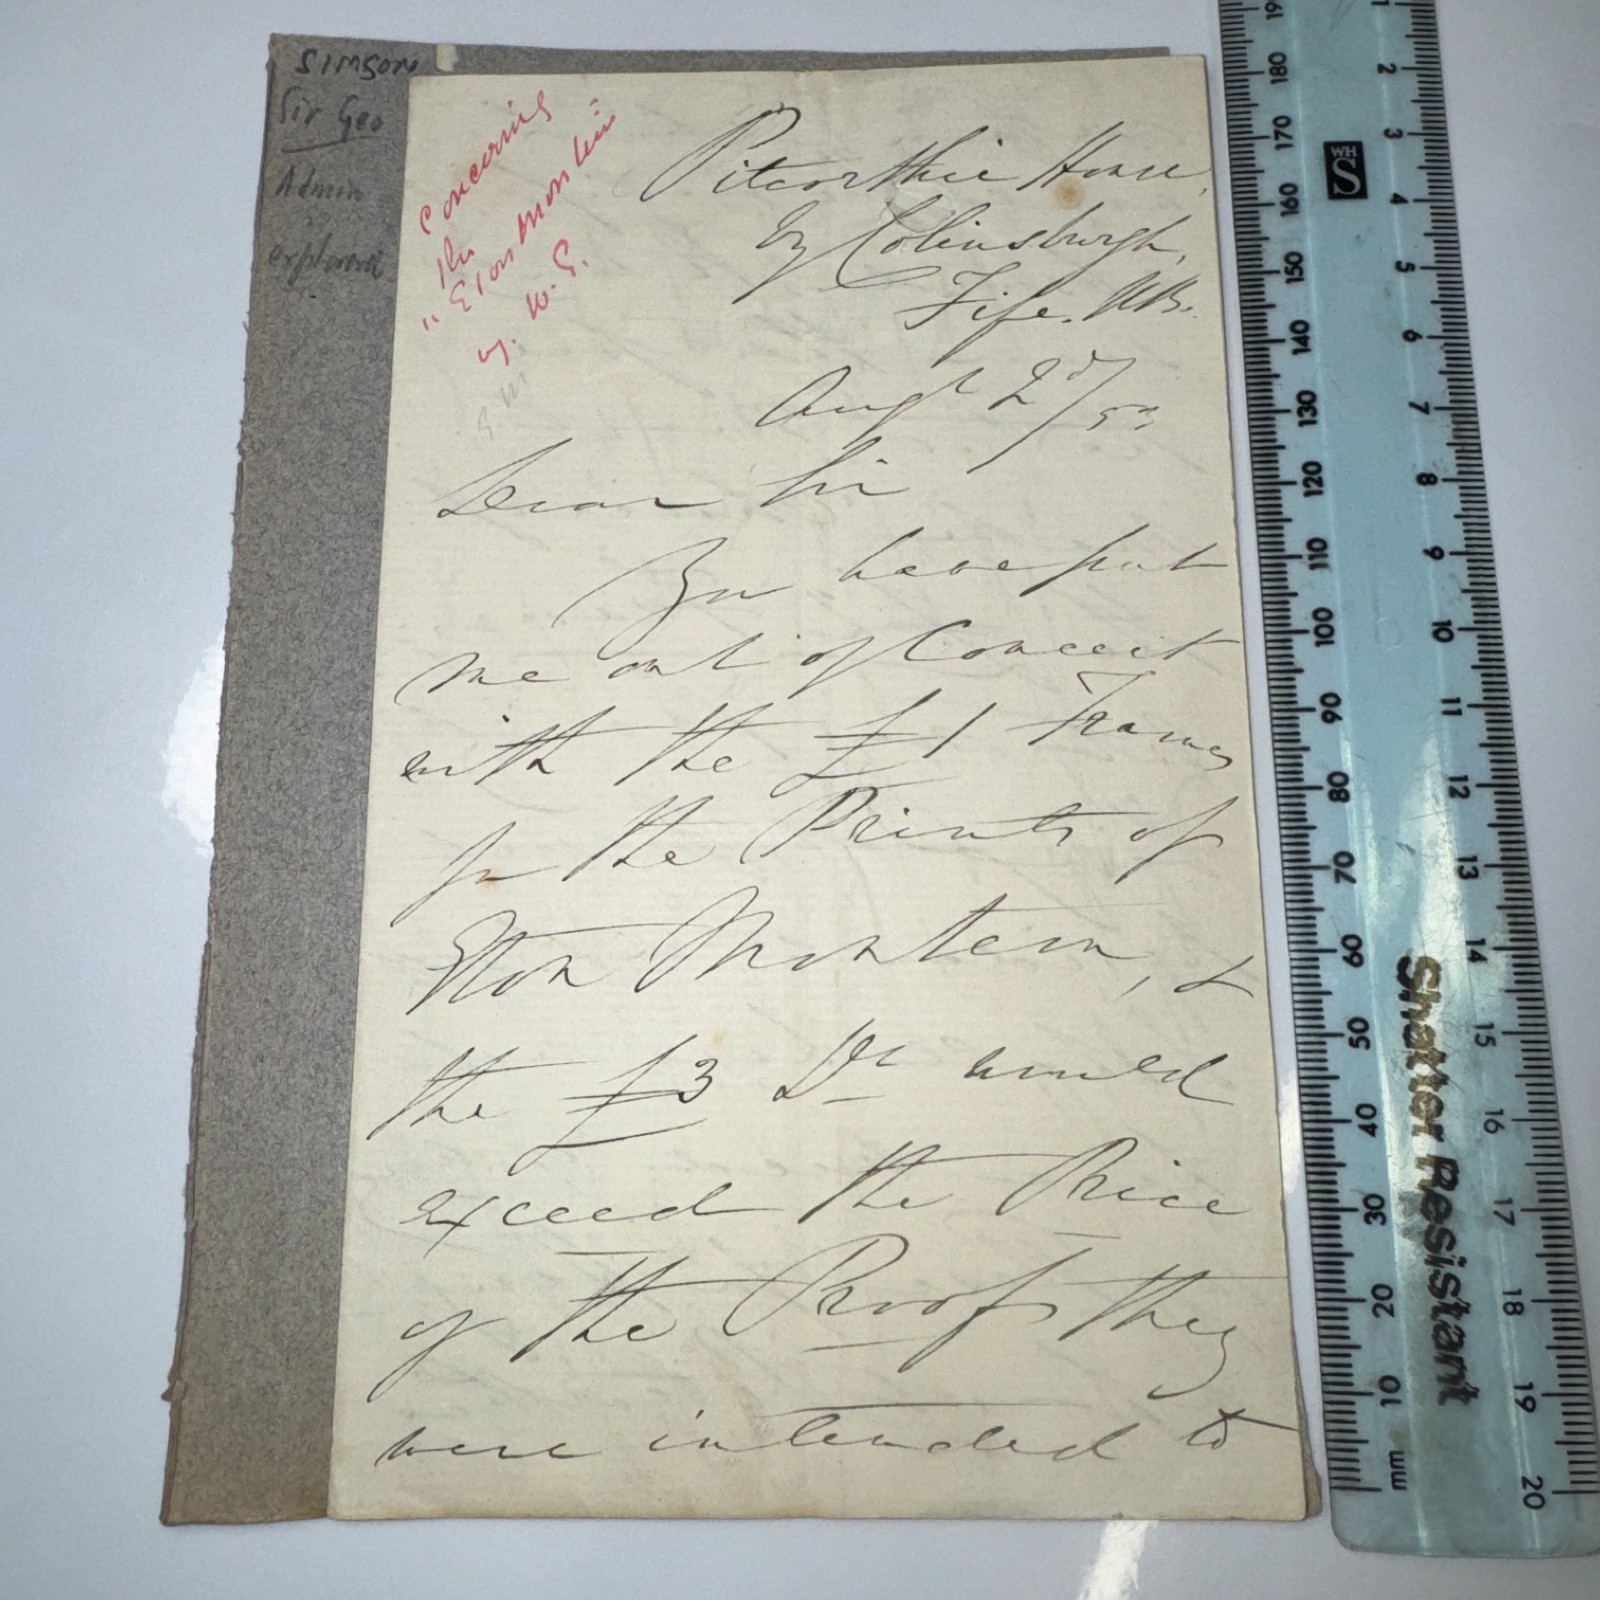 SIMSON
Sir Geo
Admin
explorer
Concerning
the
"Eton Montein"
by W. E.
Pitcorthie House,
by Colinsburgh,
Fife. N.B.
Augt 2d/53
Dear Sir
You have put
me out of Conceit
with the £1 Frames
for the Prints of
Eton Montem, &
the £3 Do would
exceed the Price
of the Proofs they
were intended to
WHS
Shatter Resistant
mm
10 20 30 40 50 60 70 80 90 100 110 120 130 140 150 160 170 180 19
1 2 3 4 5 6 7 8 9 10 11 12 13 14 15 16 17 18 19 20